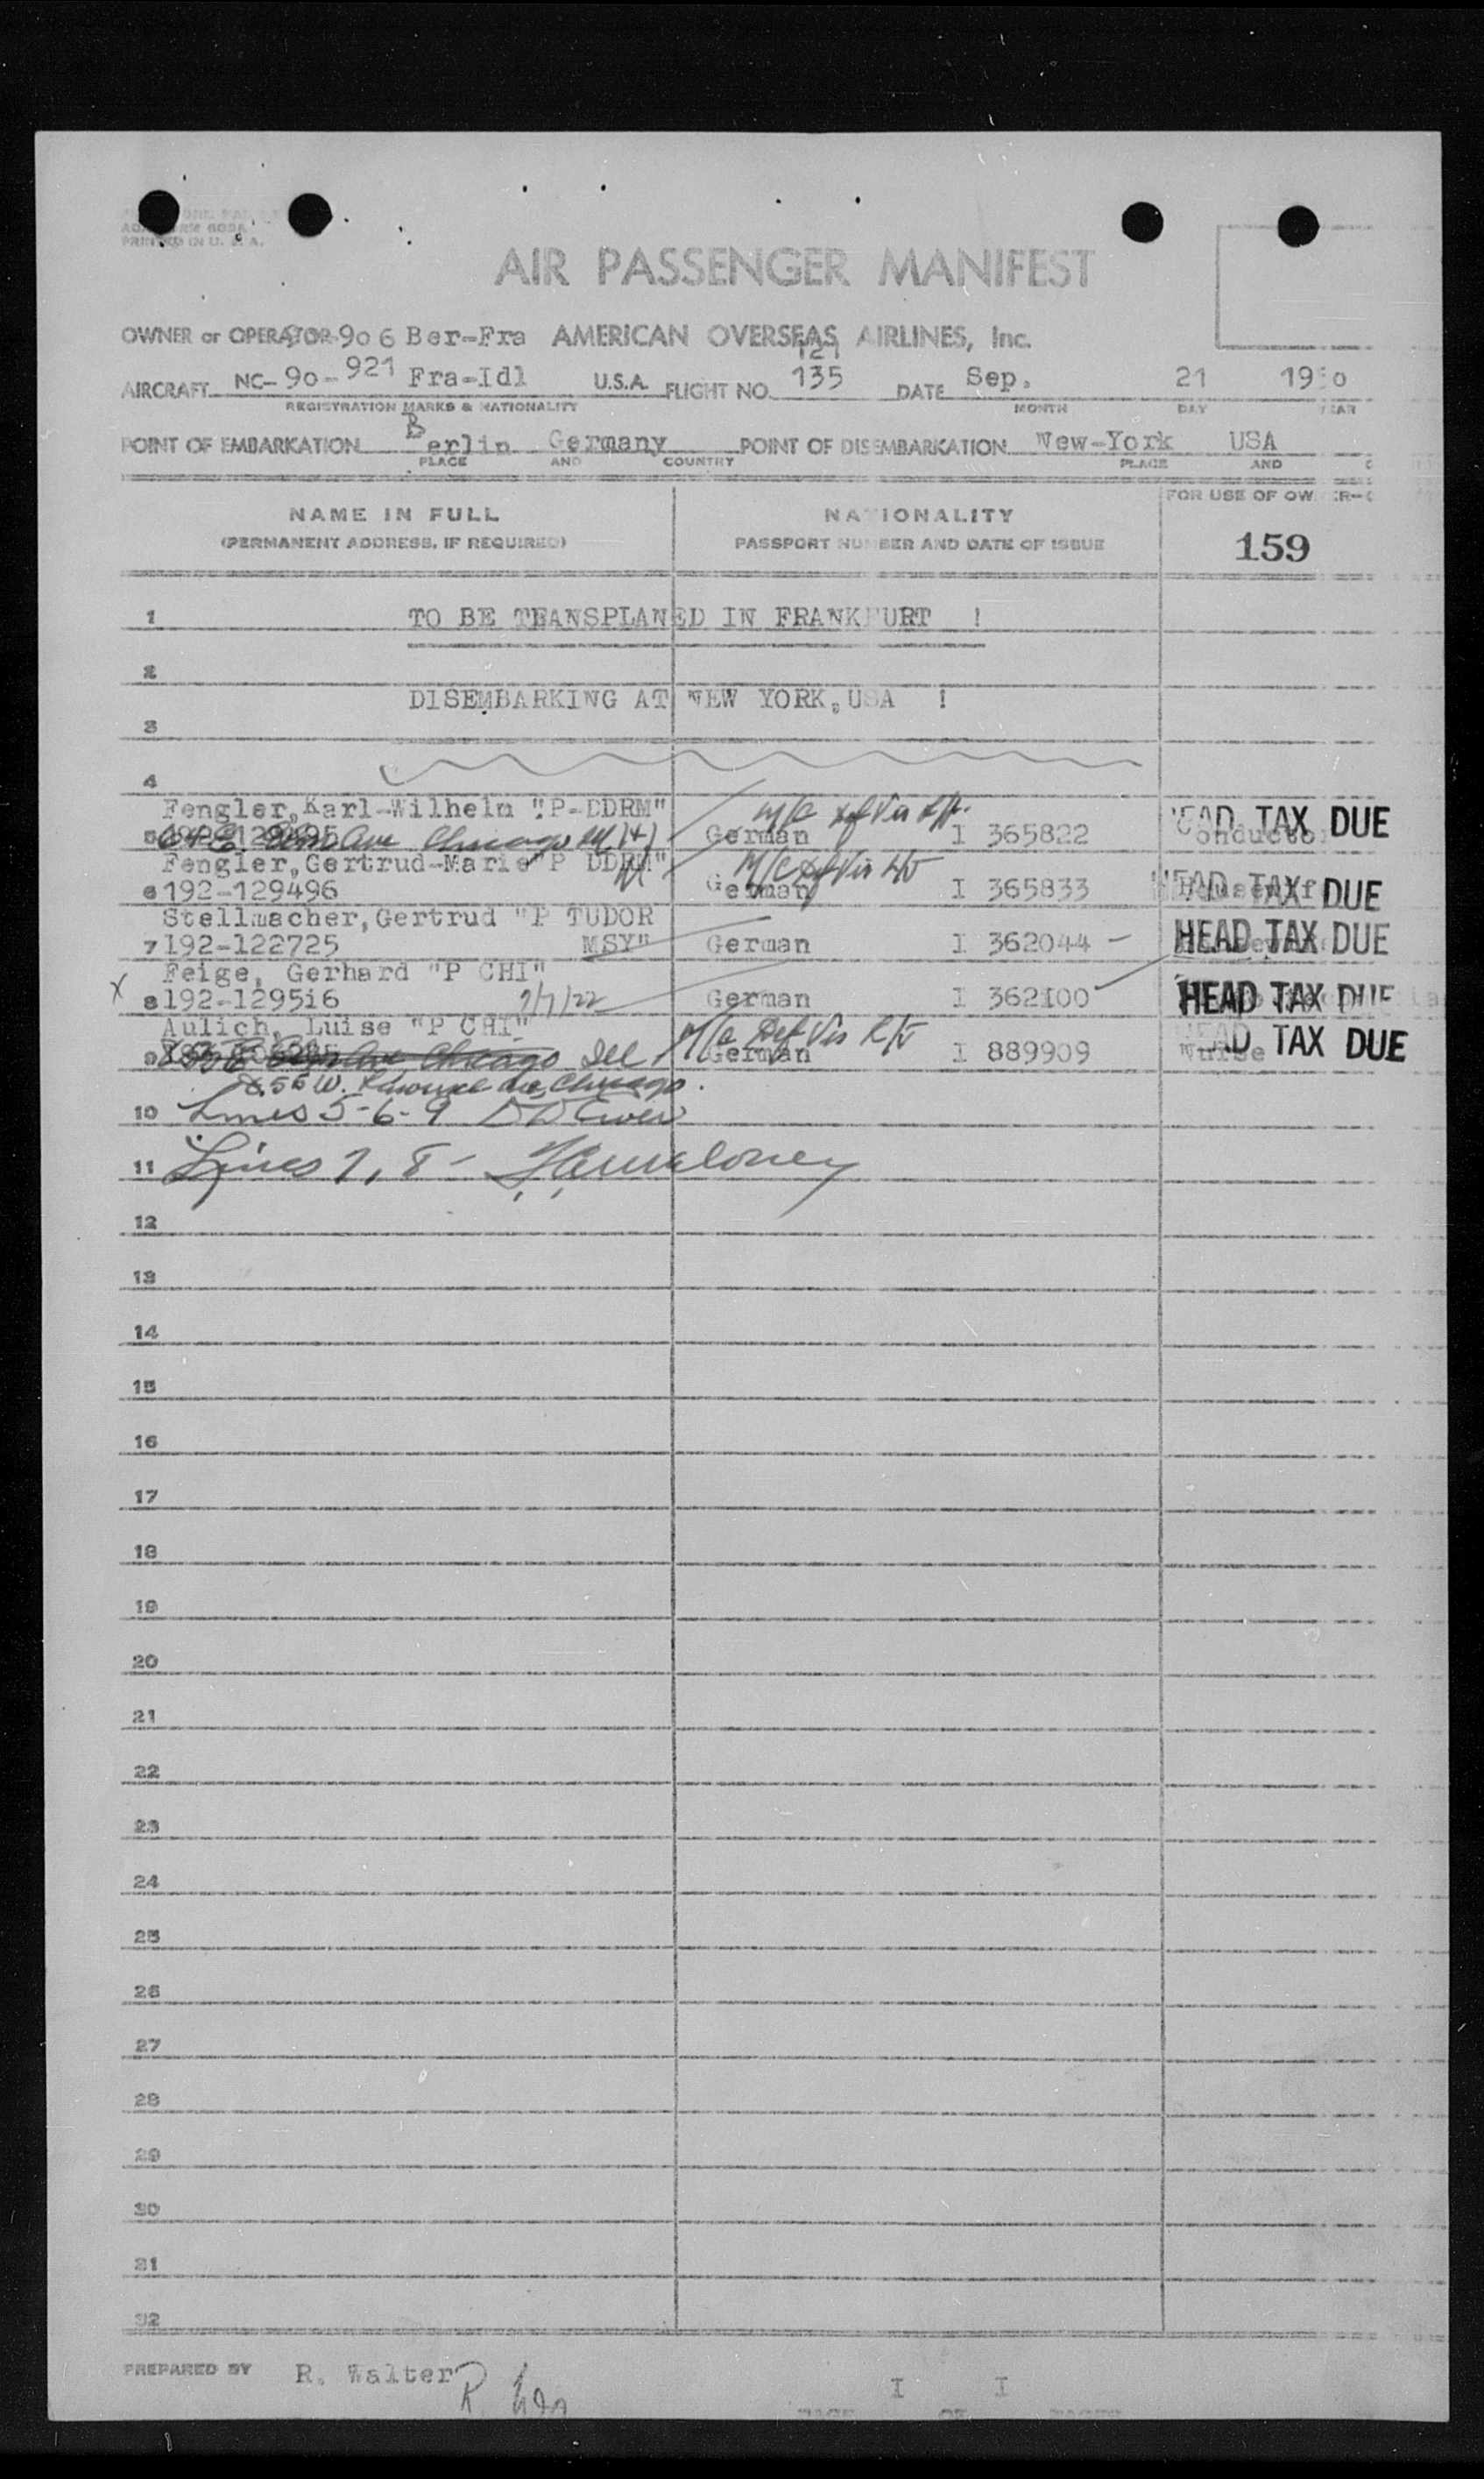 PRINTED IN U. S. A.
AIR PASSENGER MANIFEST
OWNER or OPERATOR 906 Ber-Fra AMERICAN OVERSEAS AIRLINES, Inc.
121
AIRCRAFT NC- 90- 921 Fra-Idl U.S.A. FLIGHT NO. 135 DATE Sep. 21 1950
REGISTRATION MARKS & NATIONALITY MONTH DAY YEAR
POINT OF EMBARKATION Berlin Germany POINT OF DISEMBARKATION New-York USA
PLACE AND COUNTRY PLACE AND
NAME IN FULL NATIONALITY FOR USE OF OWNER-
(PERMANENT ADDRESS, IF REQUIRED) PASSPORT NUMBER AND DATE OF ISSUE 159
1 TO BE TEANSPLANED IN FRANKFURT !
2
DISEMBARKING AT NEW YORK, USA !
3
4
Fengler, Karl-Wilhelm "P-DDRM" HEAD TAX DUE
5 192-129495 Ave Chicago German I 365822 Conductor
Fengler, Gertrud-Marie "P DDRM"
6 192-129496 German I 365833 HEAD TAX DUE
Stellmacher, Gertrud "P TUDOR
7 192-122725 MSY" German I 362044 HEAD TAX DUE
Feige, Gerhard "P CHI"
X 8 192-129516 7/7/22 German I 362100 HEAD TAX DUE
Aulich, Luise "P CHI"
9 Chicago Ill German I 889909 Nurse HEAD TAX DUE
856 W. Ave, Chicago.
10 Lines 5-6-9
11 Lines 7, 8-
12
13
14
15
16
17
18
19
20
21
22
23
24
25
26
27
28
29
30
31
32
PREPARED BY R. Walter
I I
PAGE OF PAGES